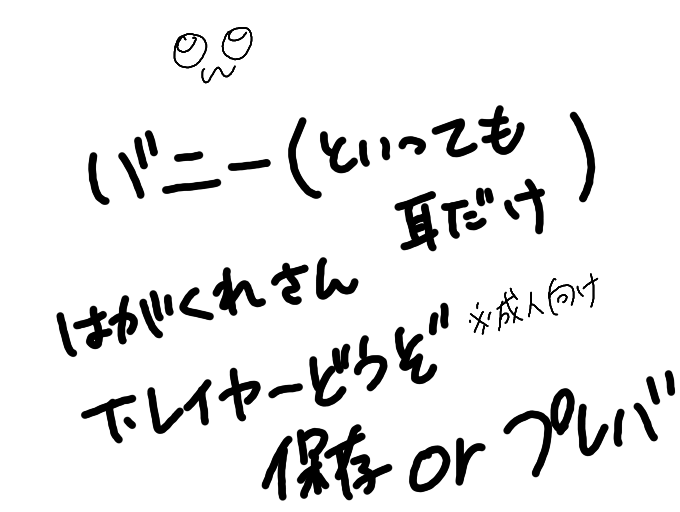 バニー(といっても
耳だけ)
はがくれさん
※成人向け
下レイヤーどうぞ
保存 or プレバ